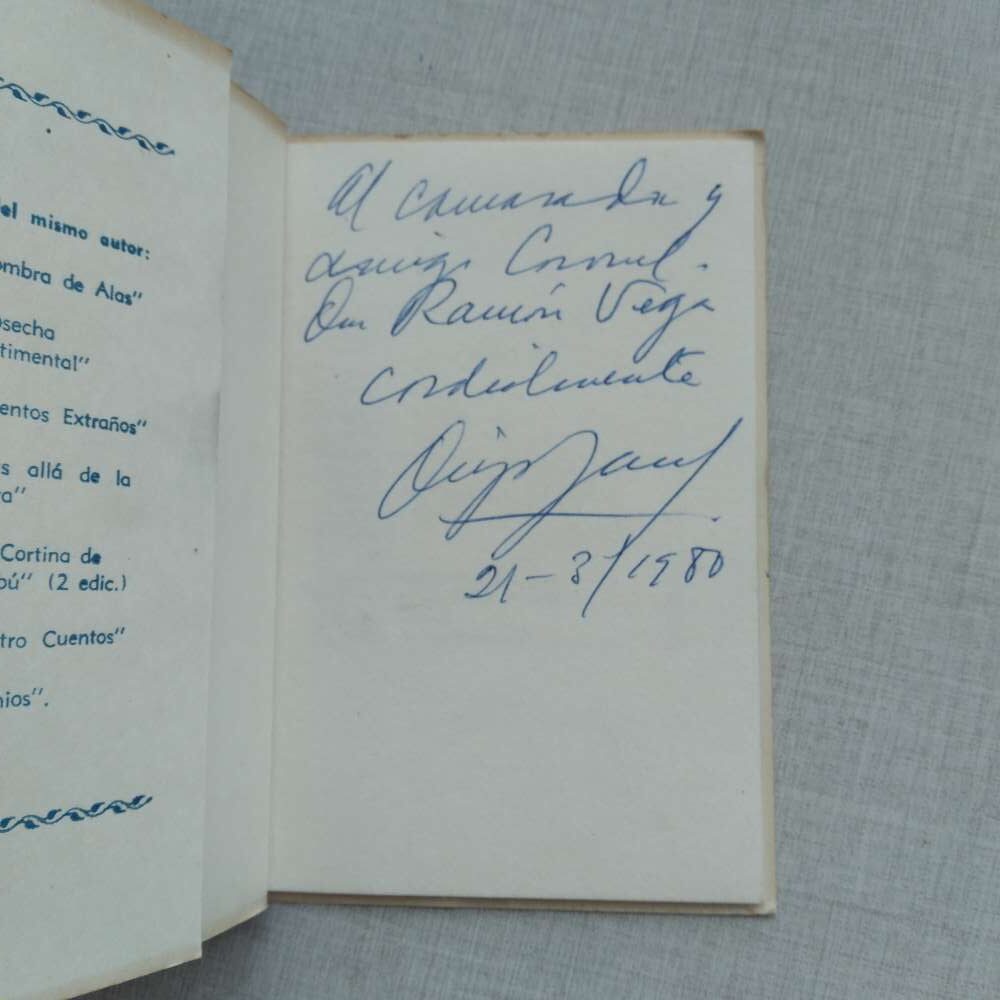 el mismo autor:
ombra de Alas"
osecha
timental"
entos Extraños"
s allá de la
a"
Cortina de
bú" (2 edic.)
tro Cuentos"
nios".
Al camarada y
amigo Coronel.
Don Ramón Vega
cordialmente
21-3/1980